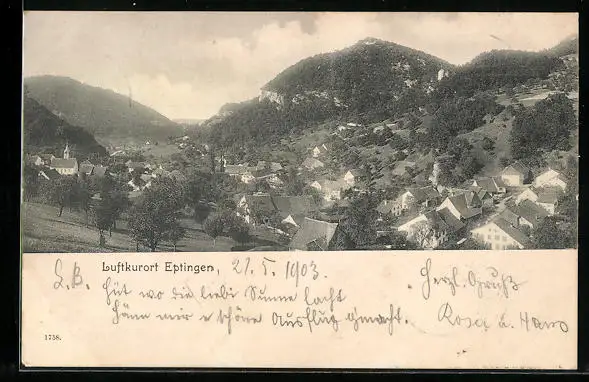 Luftkurort Eptingen, 21. V. 1903.
L. B. Hüt wo die liebi Sunne lacht
Hänn mir e schöne Ausflug gmacht.
Herzl. Gruß
Rosa u. Hans
1758.